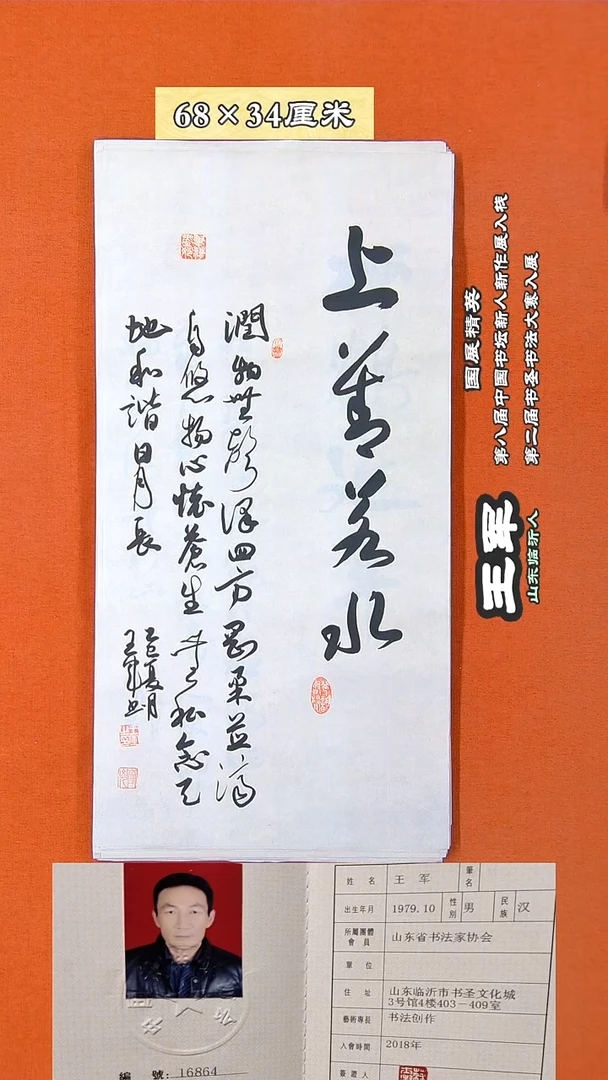 68×34厘米
上善若水
潤物無聲澤四方剛柔並濟
自悠揚心懷蒼生無私念天
地和諧日月長
乙巳夏月
王軍書
国展精英
第八届中国书坛新人新作展入展
第二届书圣书法大赛入展
王军
山东临沂人
姓名 王军 筆名
出生年月 1979.10 性別 男 民族 汉
所屬團體會員 山东省书法家协会
單位
住址 山东临沂市书圣文化城
3号馆4楼403－409室
藝術專長 书法创作
入會時間 2018年
簽證人
編號：16864